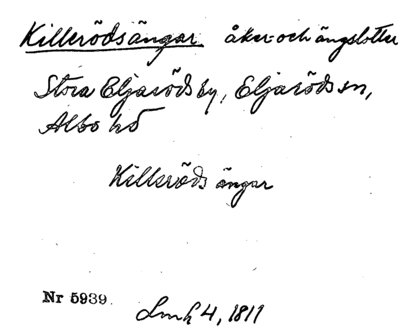 Killerödsängar åker- och ängslotter
Stora Eljaröds by, Eljaröds sn,
Albo hd
Killeröds ängar
Nr 5939
Lmh 4, 1811